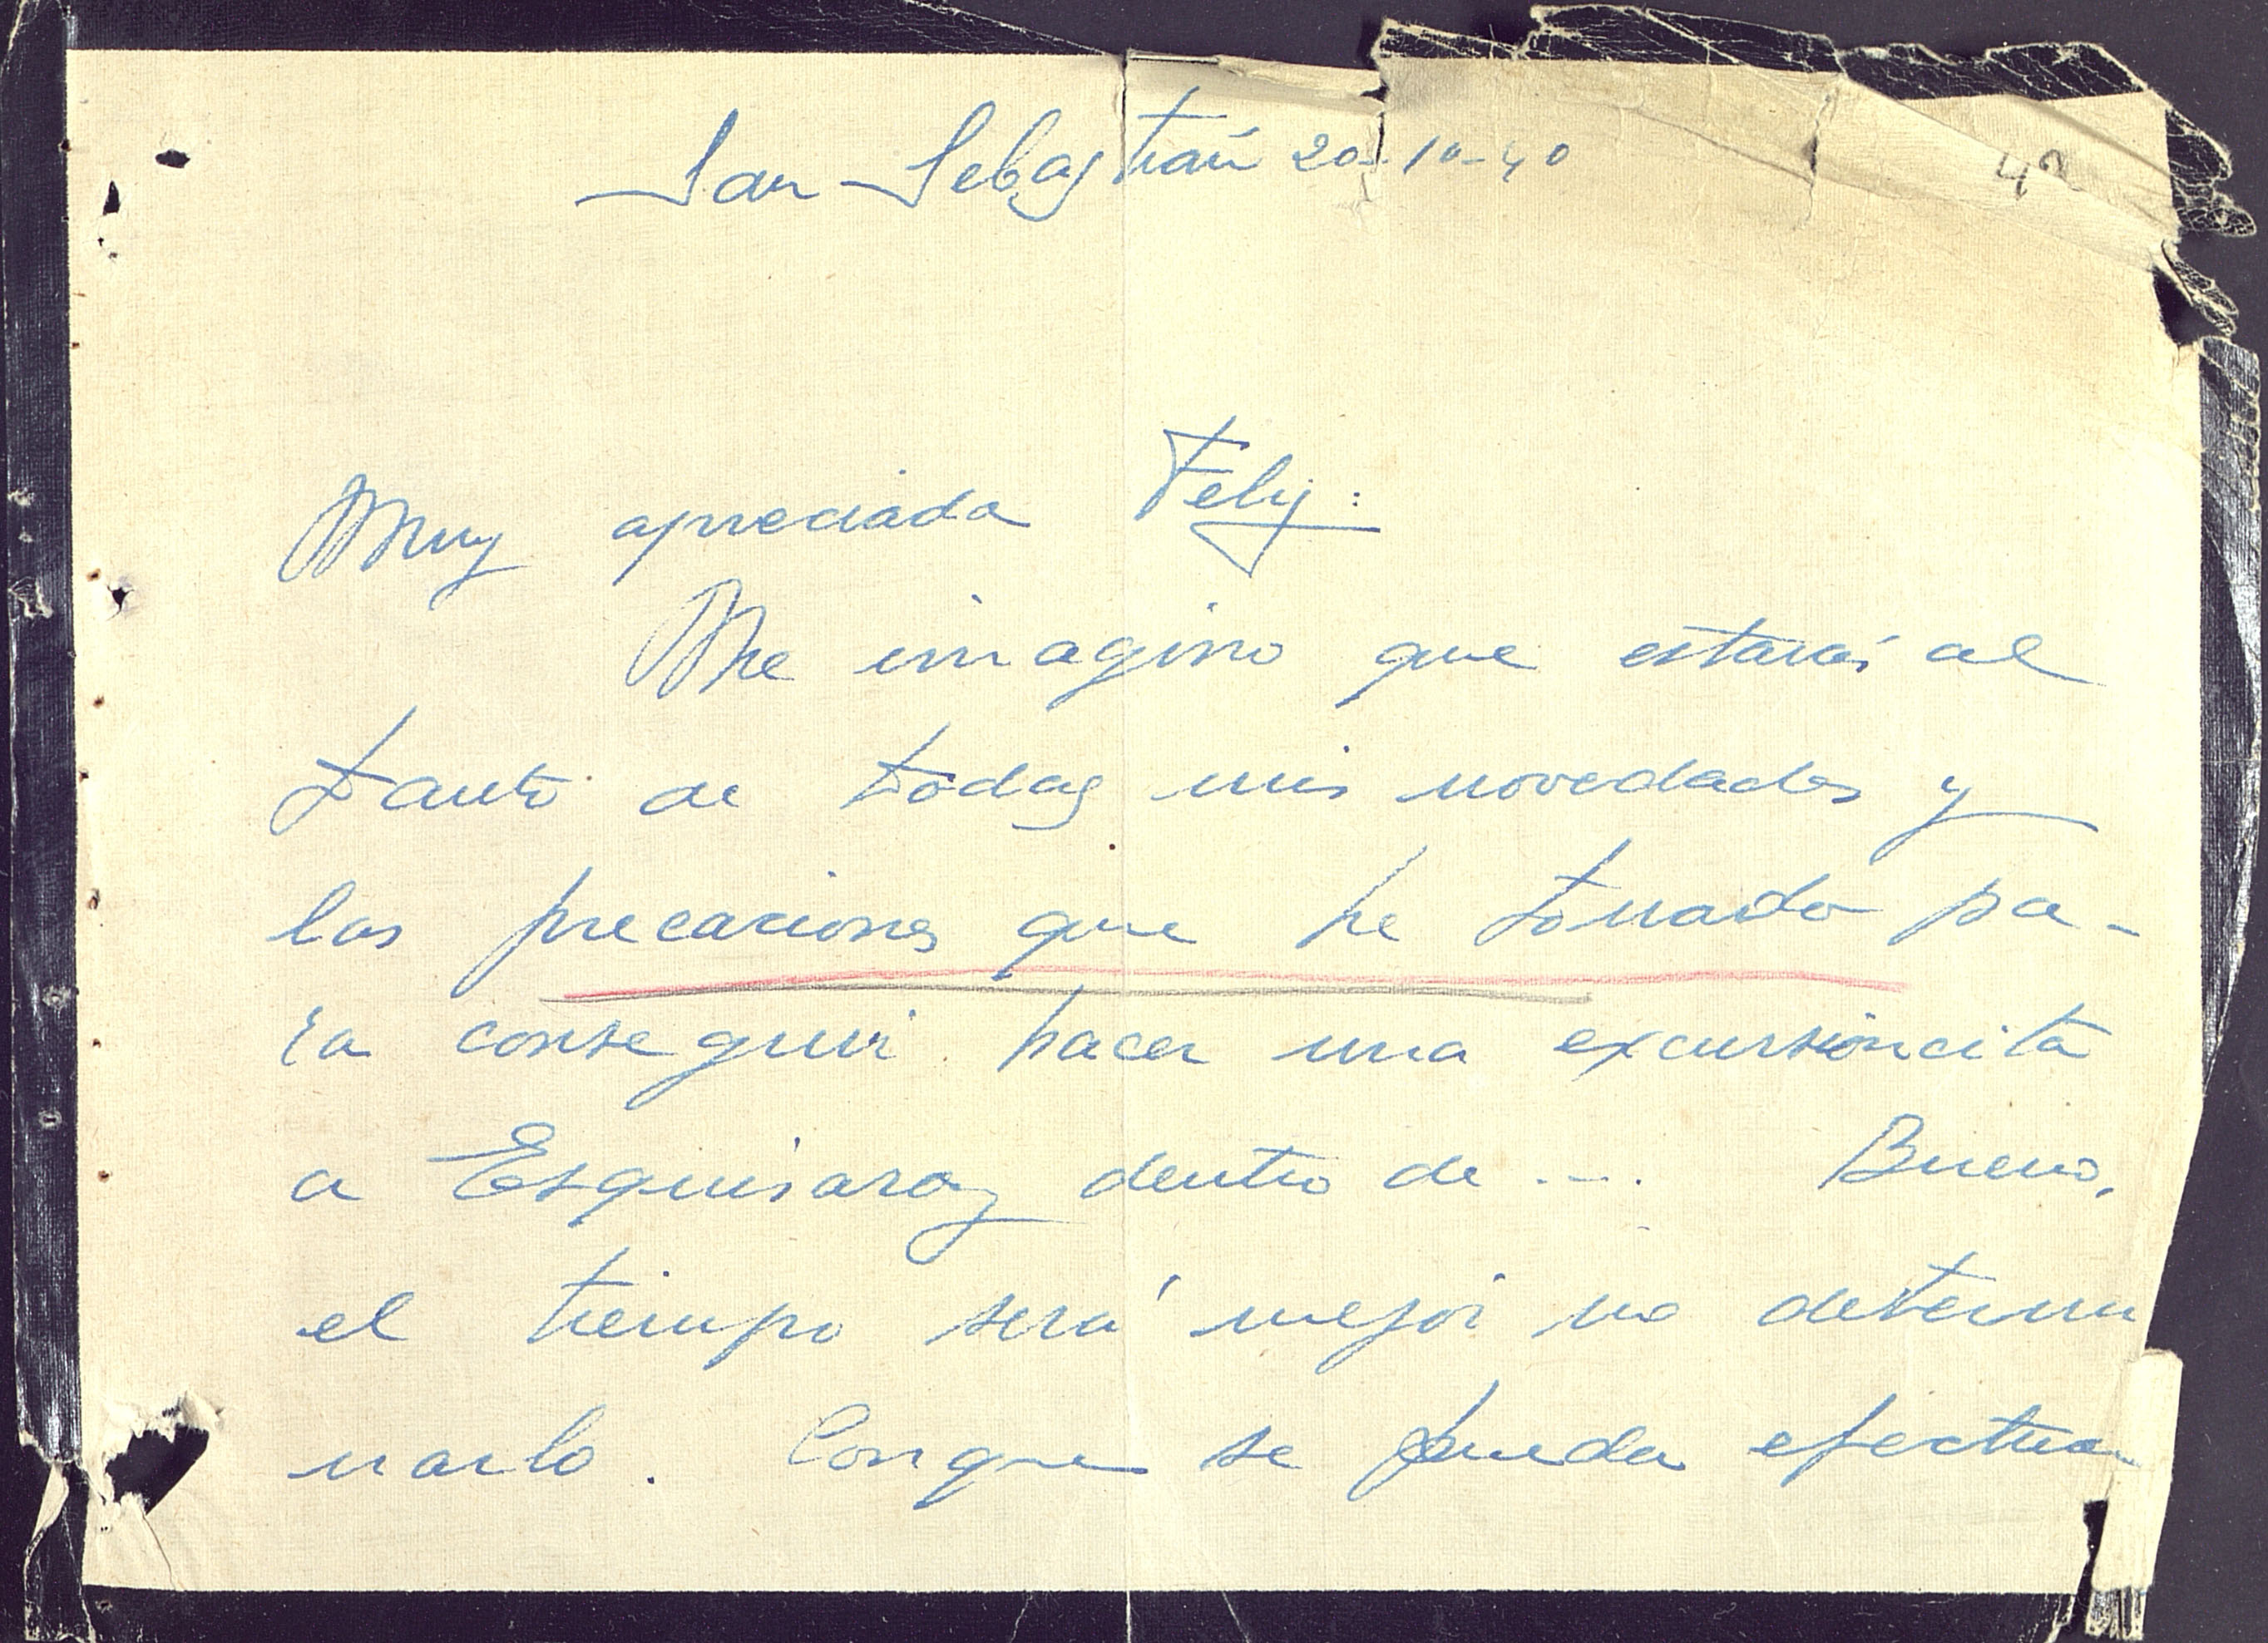 San Sebastián 20-10-40
42
Muy apreciada Fely:
Me imagino que estarás al
tanto de todas mis novedades y
las precauciones que he tomado pa-
ra conseguir hacer una excursioncita
a Esquisaroy dentro de .... Bueno,
el tiempo será mejor no determi
narlo. Conque se pueda efectuar